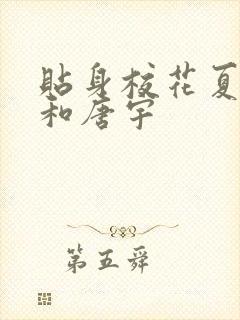 贴身校花夏
和唐宇
第五舜